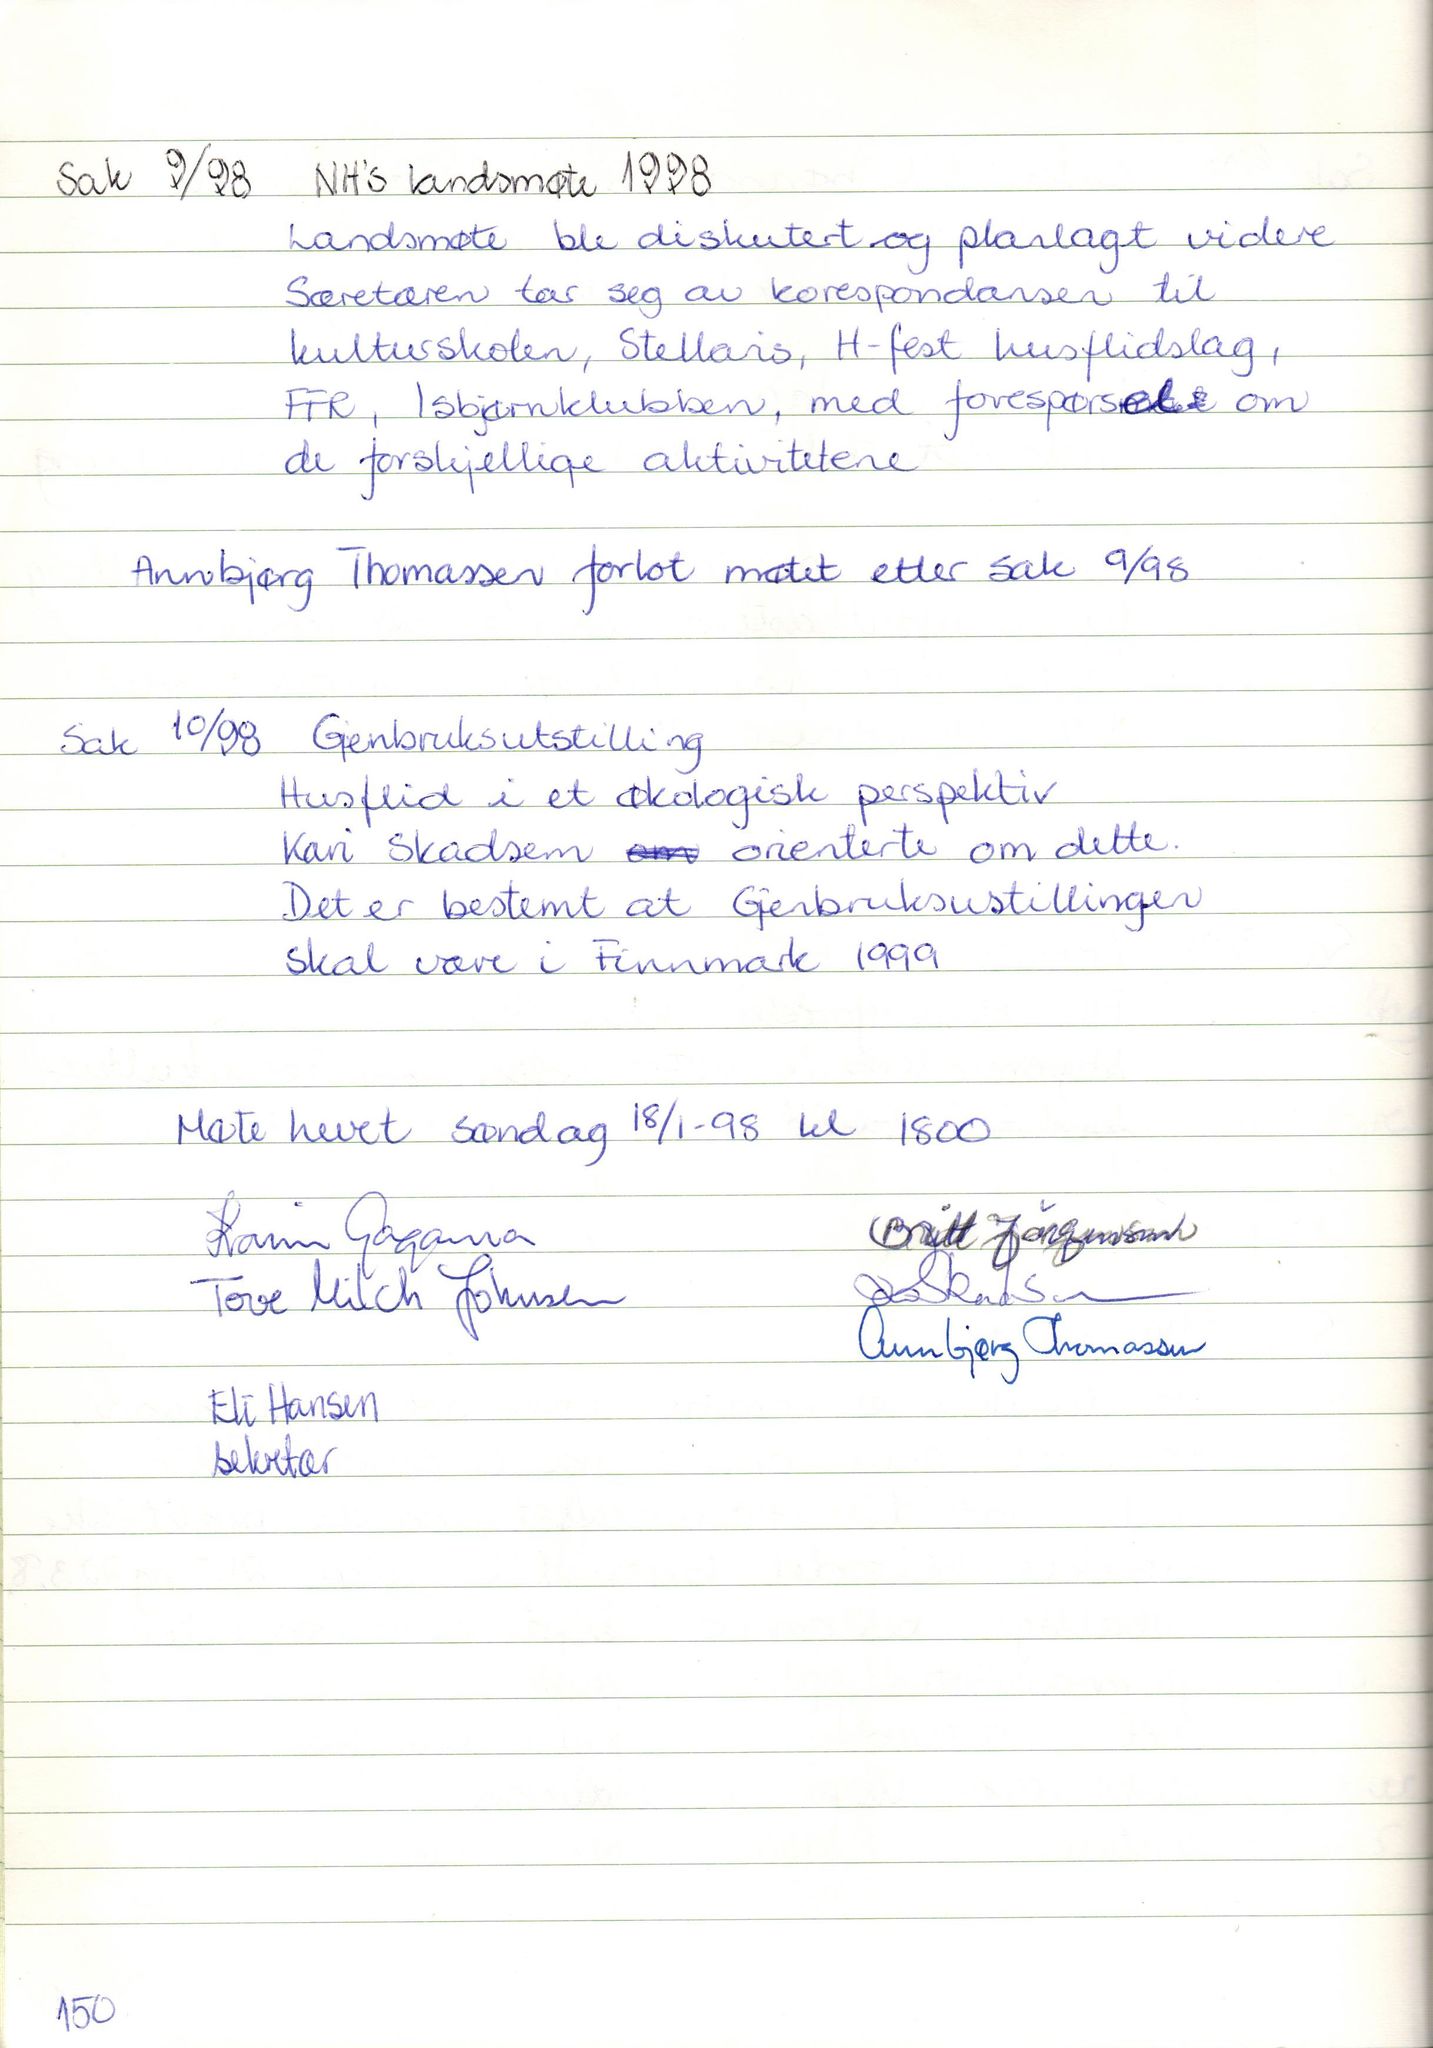 Sak 9/98 NH's landsmøte 1998
Landsmøte ble diskutert og planlagt videre
Særetæren tar seg av korespondansen til
kulturskolen, Stellaris, H-fest husflidslag,
FFR, Isbjørnklubben, med forespørsel om
de forskjellige aktivitetene
Annbjørg Thomassen forlot møtet etter sak 9/98
Sak 10/98 Gjenbruksutstilling
Husflid i et økologisk perspektiv
Kari Skadsem orienterte om dette.
Det er bestemt at Gjenbruksustillingen
skal være i Finnmark 1999
Møte hevet søndag 18/1-98 kl 1800
Karin Gagama Britt Jørgensen
Tove Milch Johnsen Skadsem
Annbjørg Thomassen
Eli Hansen
sekretær
150